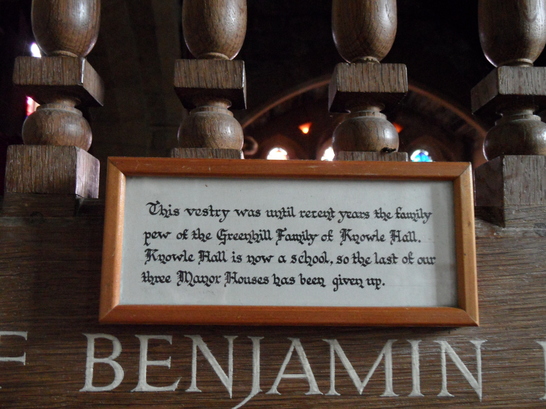 This vestry was until recent years the family
pew of the Greenhill Family of Knowle Hall.
Knowle Hall is now a school, so the last of our
three Manor Houses has been given up.
F BENJAMIN